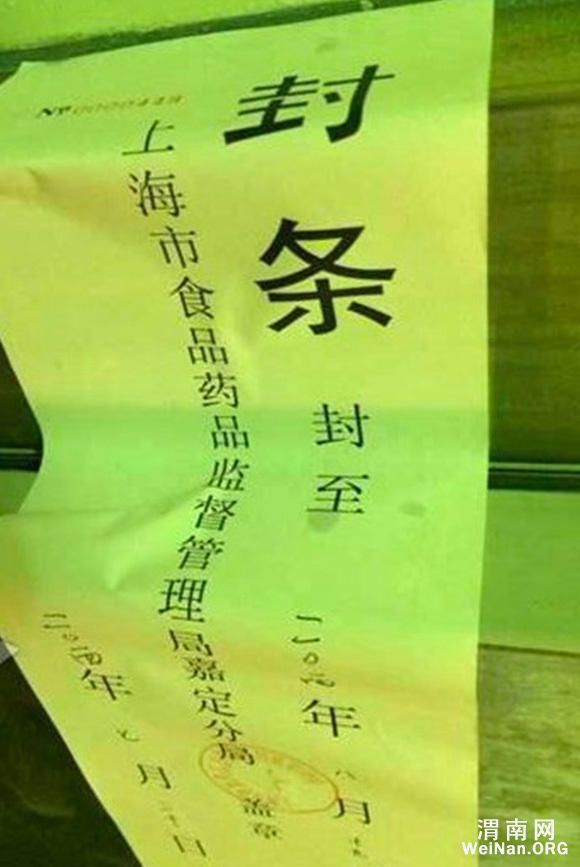 №0000443
封条
封至
二〇一四年八月
上海市食品药品监督管理局嘉定分局
盖章
二〇一四年七月二十日
渭南网
WeiNan.ORG